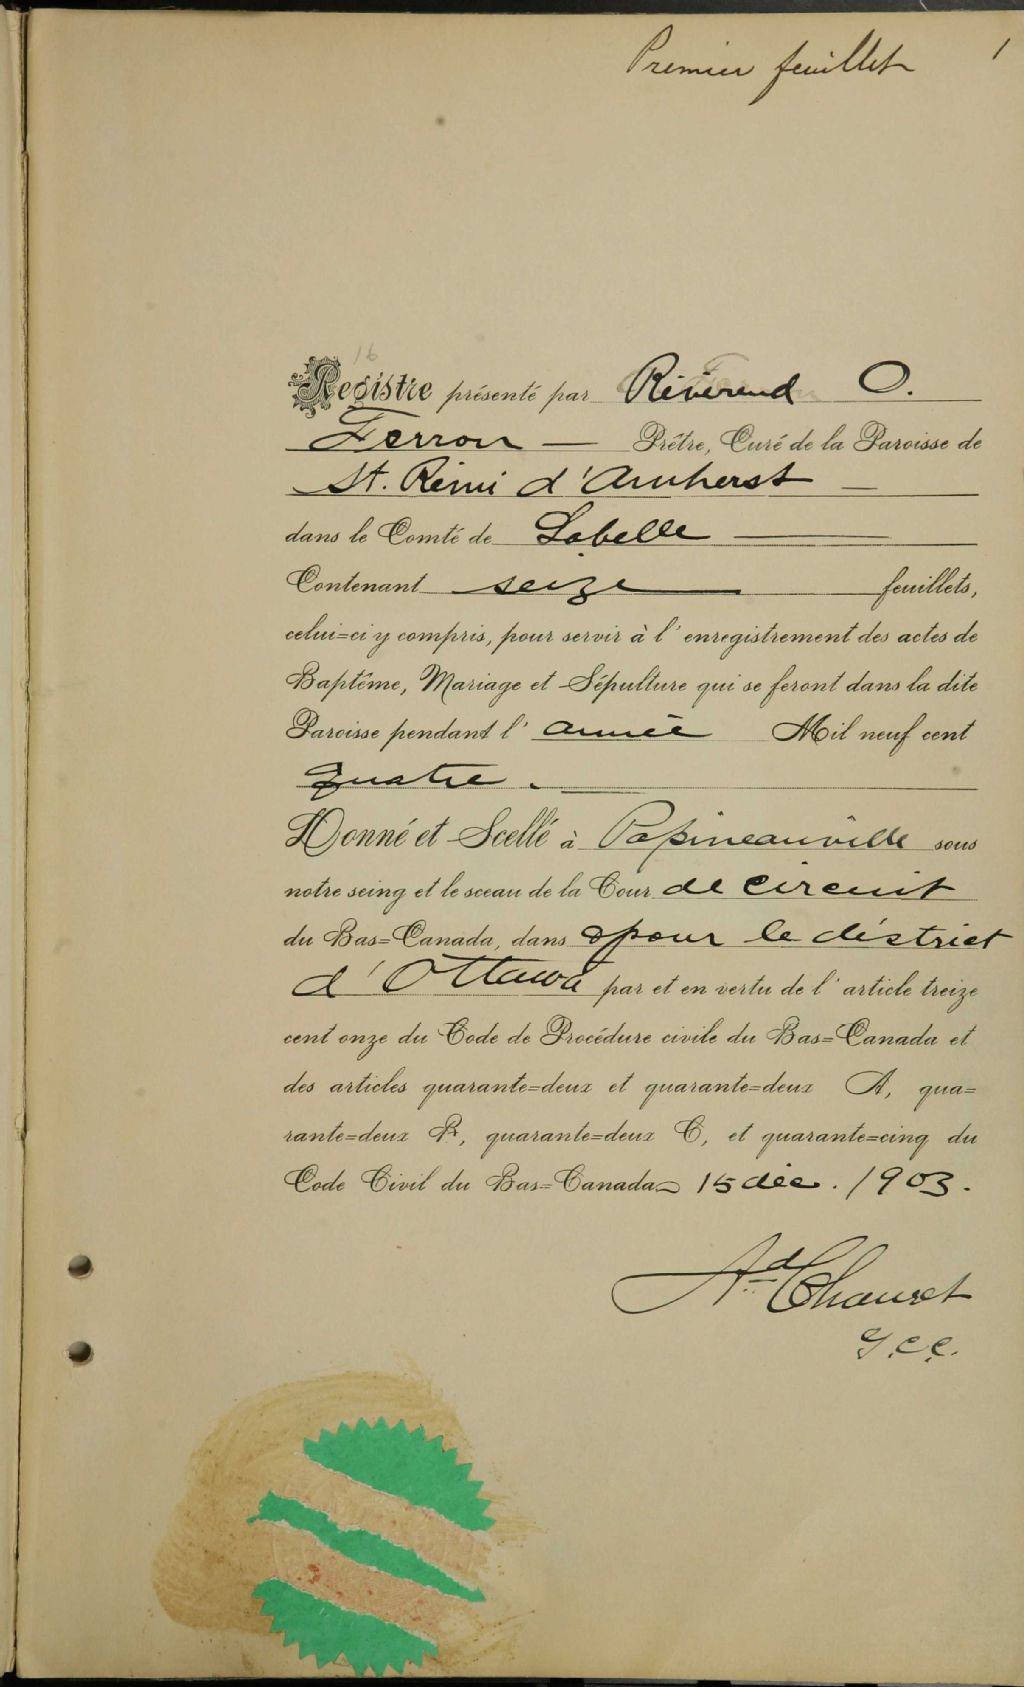 Premier feuillet 1
16
Registre présenté par Révérend O.
Ferron — Prêtre, Curé de la Paroisse de
St. Rémi d'Amherst —
dans le Comté de Labelle —
Contenant seize feuillets,
celui=ci y compris, pour servir à l'enregistrement des actes de
Baptême, Mariage et Sépulture qui se feront dans la dite
Paroisse pendant l'année Mil neuf cent
quatre.
Donné et Scellé à Papineauville sous
notre seing et le sceau de la Cour de circuit
du Bas=Canada, dans & pour le district
d'Ottawa par et en vertu de l'article treize
cent onze du Code de Procédure civile du Bas=Canada et
des articles quarante=deux et quarante=deux A, qua=
rante=deux B, quarante=deux C, et quarante=cinq du
Code Civil du Bas=Canada 15 déc. 1903.
Ad Chauret
G.C.C.